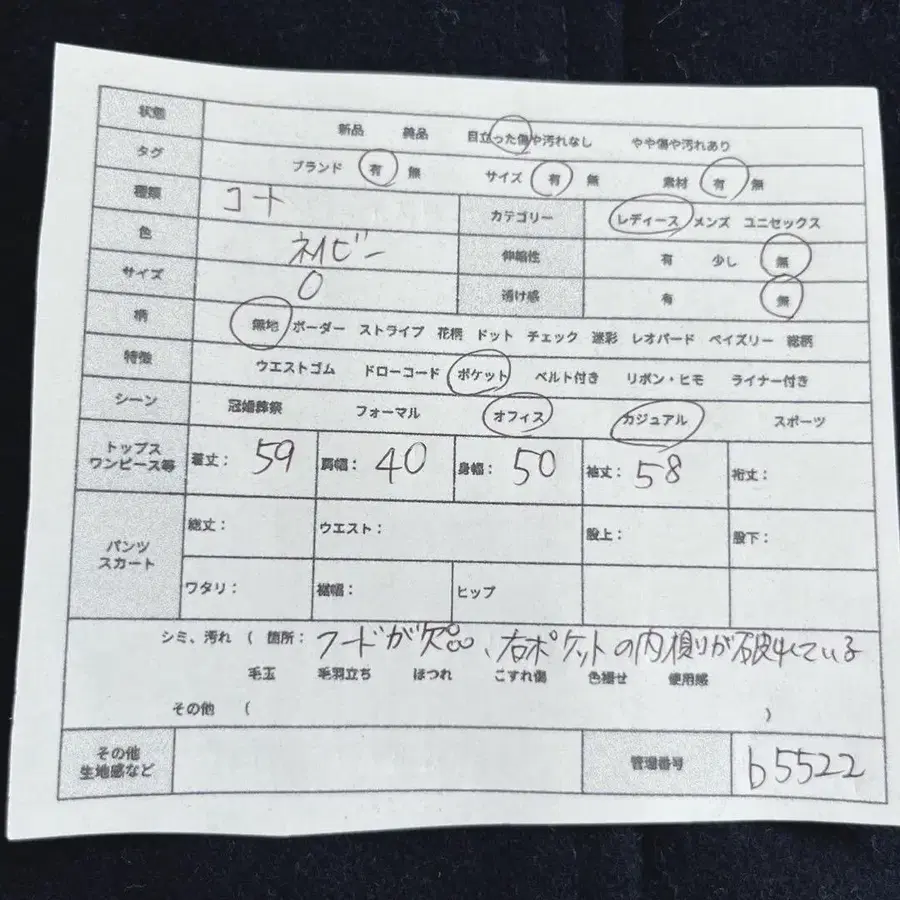 状態 新品 美品 目立った傷や汚れなし やや傷や汚れあり
タグ ブランド 有 無 サイズ 有 無 素材 有 無
種類 コート カテゴリー レディース メンズ ユニセックス
色 ネイビー 伸縮性 有 少し 無
サイズ 0 透け感 有 無
柄 無地 ボーダー ストライプ 花柄 ドット チェック 迷彩 レオパード ペイズリー 総柄
特徴 ウエストゴム ドローコード ポケット ベルト付き リボン・ヒモ ライナー付き
シーン 冠婚葬祭 フォーマル オフィス カジュアル スポーツ
トップス
ワンピース等 着丈: 59 肩幅: 40 身幅: 50 袖丈: 58 裄丈:
パンツ
スカート
総丈: ウエスト: 股上: 股下:
ワタリ: 裾幅: ヒップ
シミ、汚れ ( 箇所: フードが欠品、右ポケットの内側りが破れている
毛玉 毛羽立ち ほつれ こすれ傷 色褪せ 使用感
その他 ( )
その他
生地感など
管理番号 b5522